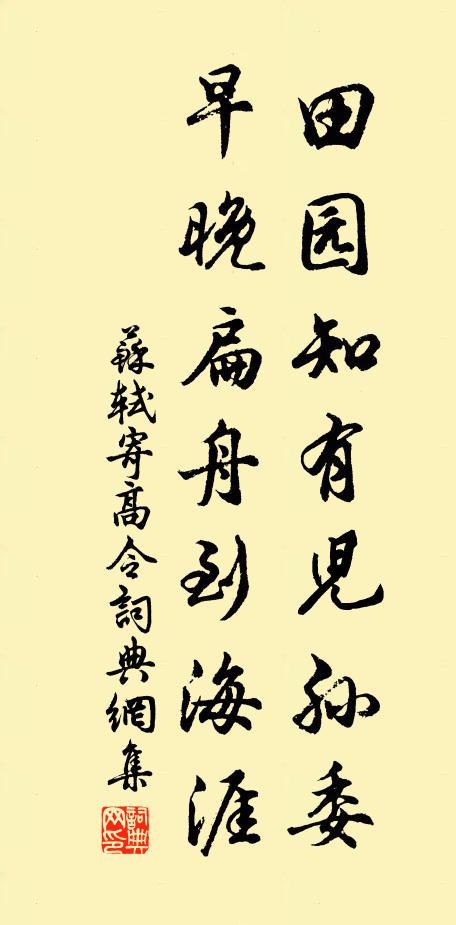 田园知有児孙委
早晚扁舟到海涯
蘇軾寄高令詞典網集
詞典网印